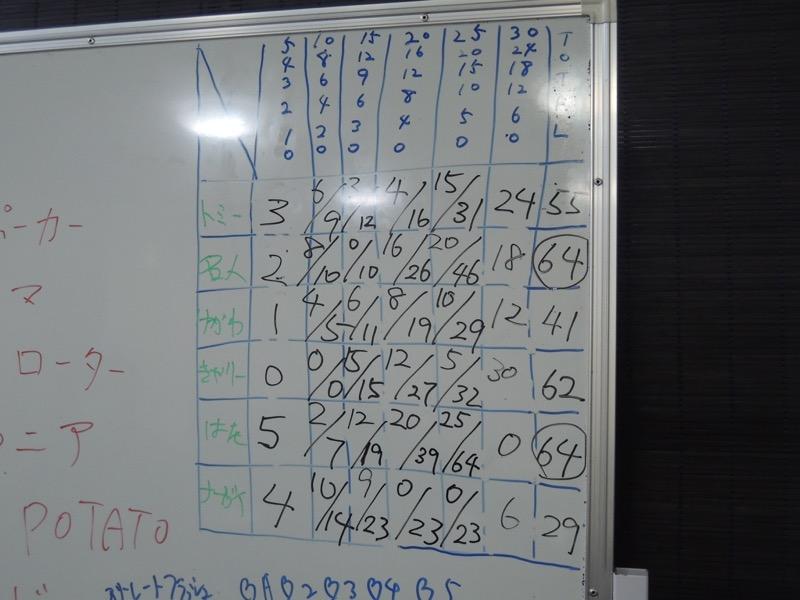 5 10 15 20 25 30 T
4 8 12 16 20 24 O
3 6 9 12 15 18 T
2 4 6 8 10 12 A
1 2 3 4 5 6 L
0 0 0 0 0 0
トミー 3 6/9 3/12 4/16 15/31 24 55
名人 2 8/10 0/10 16/26 20/46 18 64
ながわ 1 4/5 6/11 8/19 10/29 12 41
0 0/0 15/15 12/27 5/32 30 62
はた 5 2/7 12/19 20/39 25/64 0 64
4 10/14 9/23 0/23 0/23 6 29
ポーカー
マ
ローター
ニア
POTATO
ストレートフラッシュ ♡A♡2♡3♡4♡5